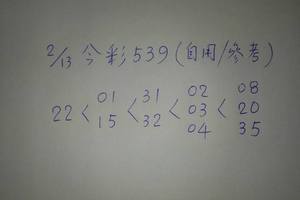 2/13 今彩539(自用/參考)
01 31 02 08
22 < < < 03 < 20
15 32 04 35